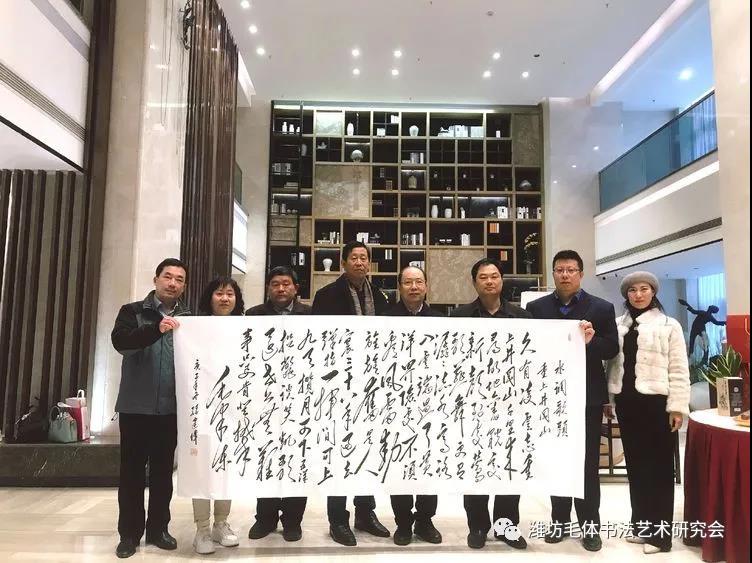 水调歌頭
重上井冈山
久有凌雲志重
上井冈山千里来
尋故地舊貌变
新颜到处莺
歌燕舞更有
潺潺流水高路
入雲端過了黄
洋界险处不须
看風雷動
旌旗奮是人
寰三十八年過去
弹指一揮間可上
九天攬月可下五洋
捉鳖談笑凯歌
還世上無難
事只要肯登攀
毛泽东
潍坊毛体书法艺术研究会